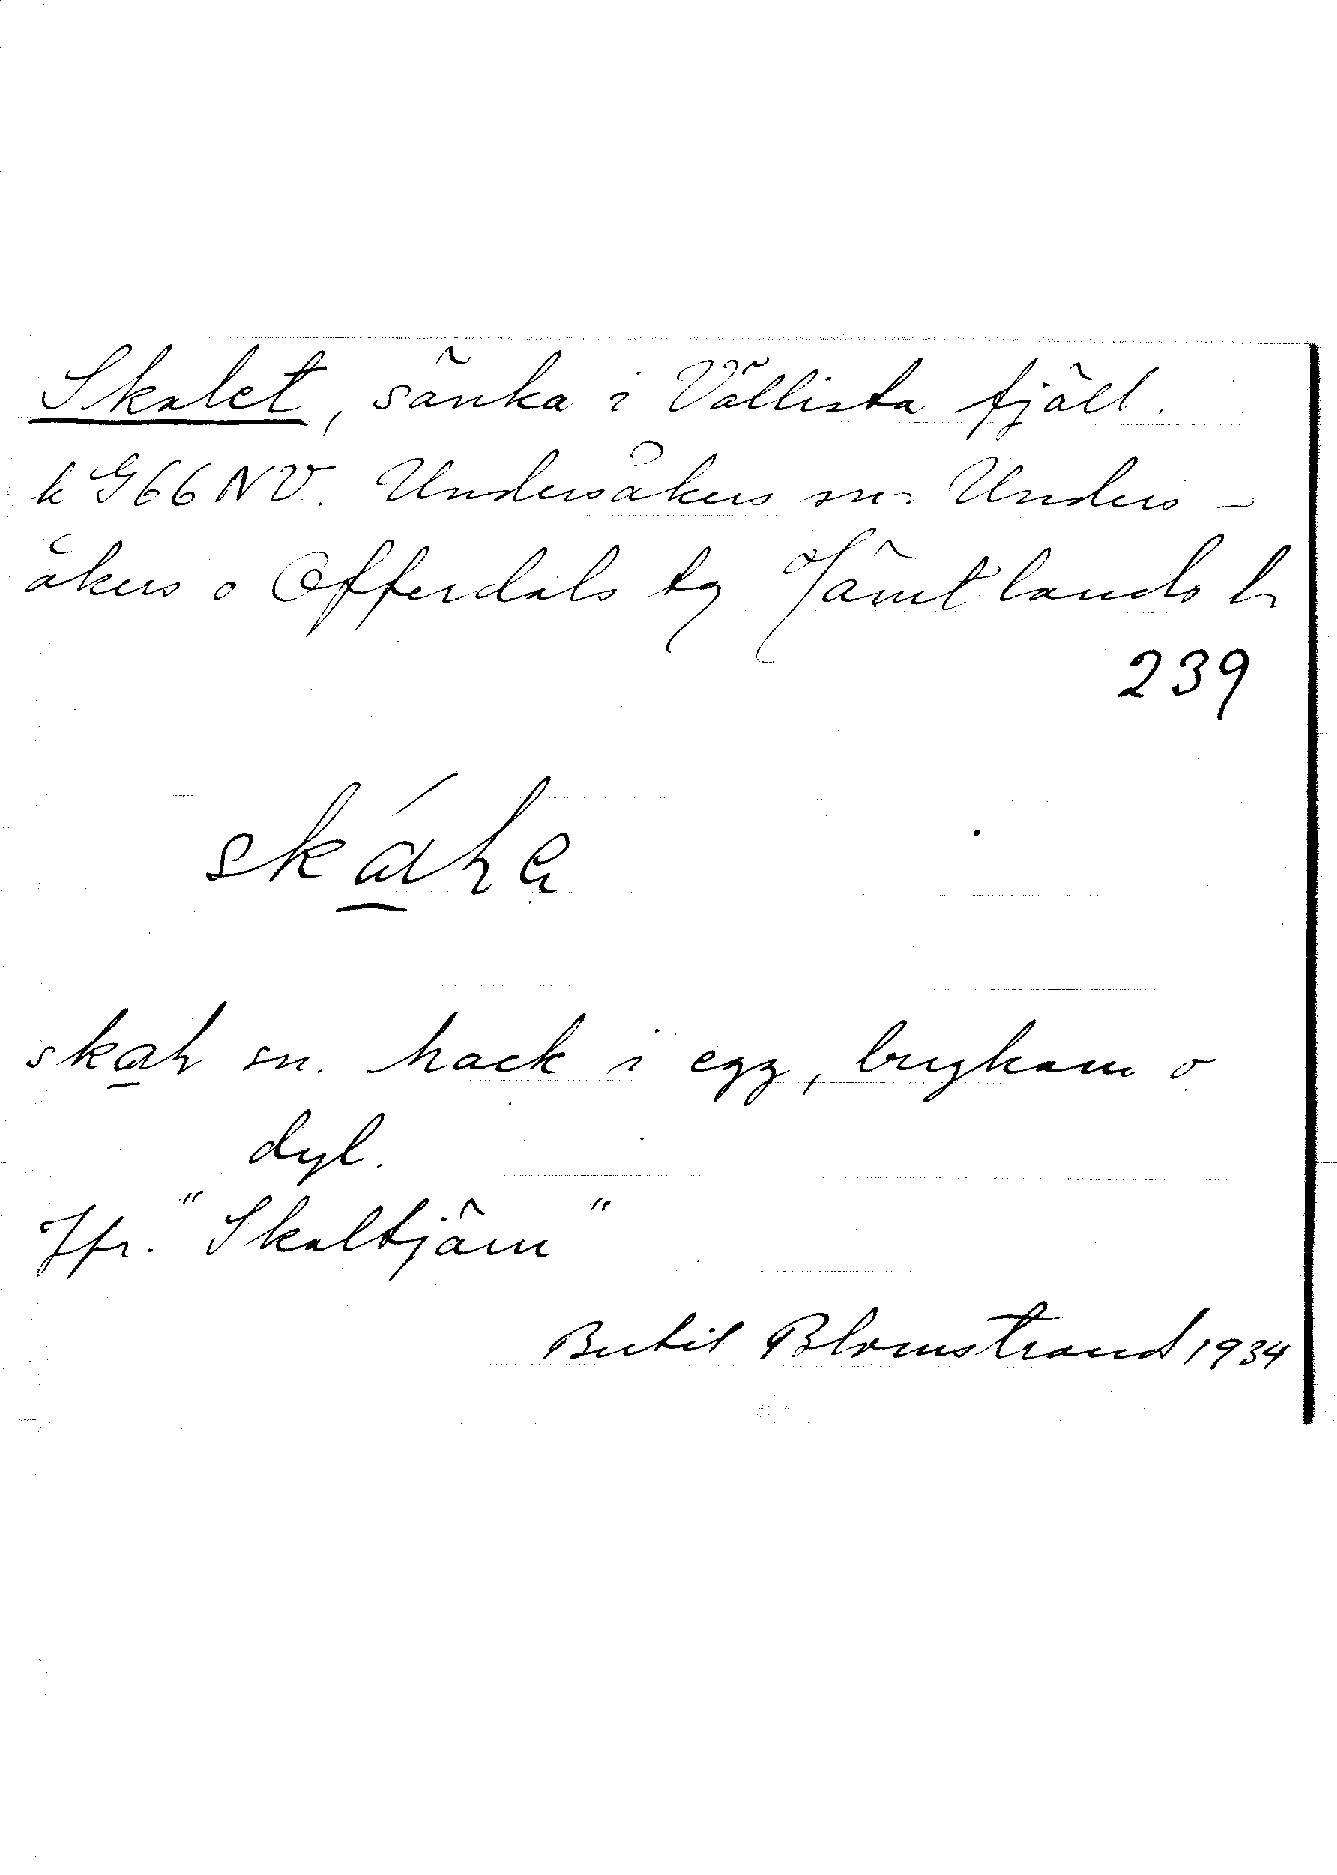 Skalet, sänka i Vällista fjäll.
k G66NV. Undersåkers sn. Unders-
åkers o Offerdals tg Jämtlands l.
239
skal sn. hack i egg, bergkam o
dyl.
Jfr. "Skaltjärn"
Bertil Blomstrand 1934